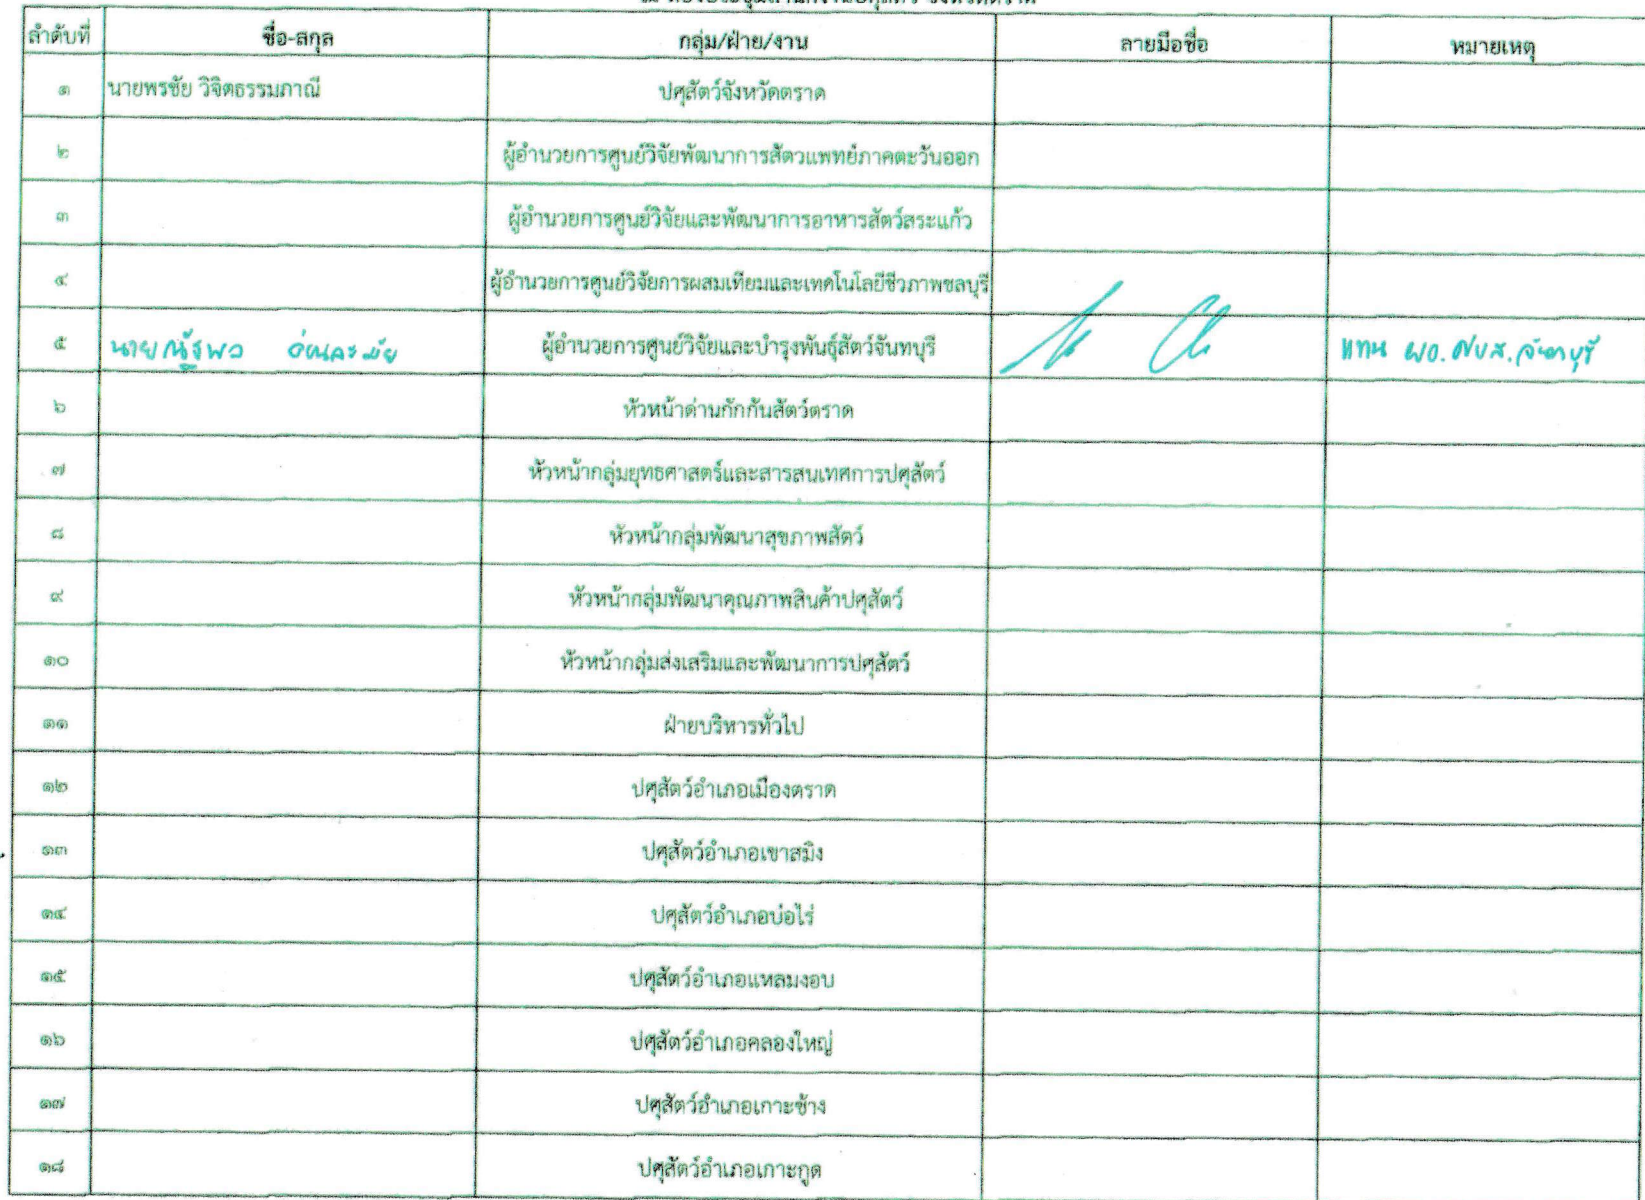 ลำดับที่ ชื่อ-สกุล กลุ่ม/ฝ่าย/งาน ลายมือชื่อ หมายเหตุ
๑ นายพรชัย วิจิตธรรมภาณี ปศุสัตว์จังหวัดตราด
๒ ผู้อำนวยการศูนย์วิจัยพัฒนาการสัตวแพทย์ภาคตะวันออก
๓ ผู้อำนวยการศูนย์วิจัยและพัฒนาการอาหารสัตว์สระแก้ว
๔ ผู้อำนวยการศูนย์วิจัยการผสมเทียมและเทคโนโลยีชีวภาพชลบุรี
๕ นายณัฐพล ผู้อำนวยการศูนย์วิจัยและบำรุงพันธุ์สัตว์จันทบุรี แทน ผอ.ศบส.จันทบุรี
๖ หัวหน้าด่านกักกันสัตว์ตราด
๗ หัวหน้ากลุ่มยุทธศาสตร์และสารสนเทศการปศุสัตว์
๘ หัวหน้ากลุ่มพัฒนาสุขภาพสัตว์
๙ หัวหน้ากลุ่มพัฒนาคุณภาพสินค้าปศุสัตว์
๑๐ หัวหน้ากลุ่มส่งเสริมและพัฒนาการปศุสัตว์
๑๑ ฝ่ายบริหารทั่วไป
๑๒ ปศุสัตว์อำเภอเมืองตราด
๑๓ ปศุสัตว์อำเภอเขาสมิง
๑๔ ปศุสัตว์อำเภอบ่อไร่
๑๕ ปศุสัตว์อำเภอแหลมงอบ
๑๖ ปศุสัตว์อำเภอคลองใหญ่
๑๗ ปศุสัตว์อำเภอเกาะช้าง
๑๘ ปศุสัตว์อำเภอเกาะกูด